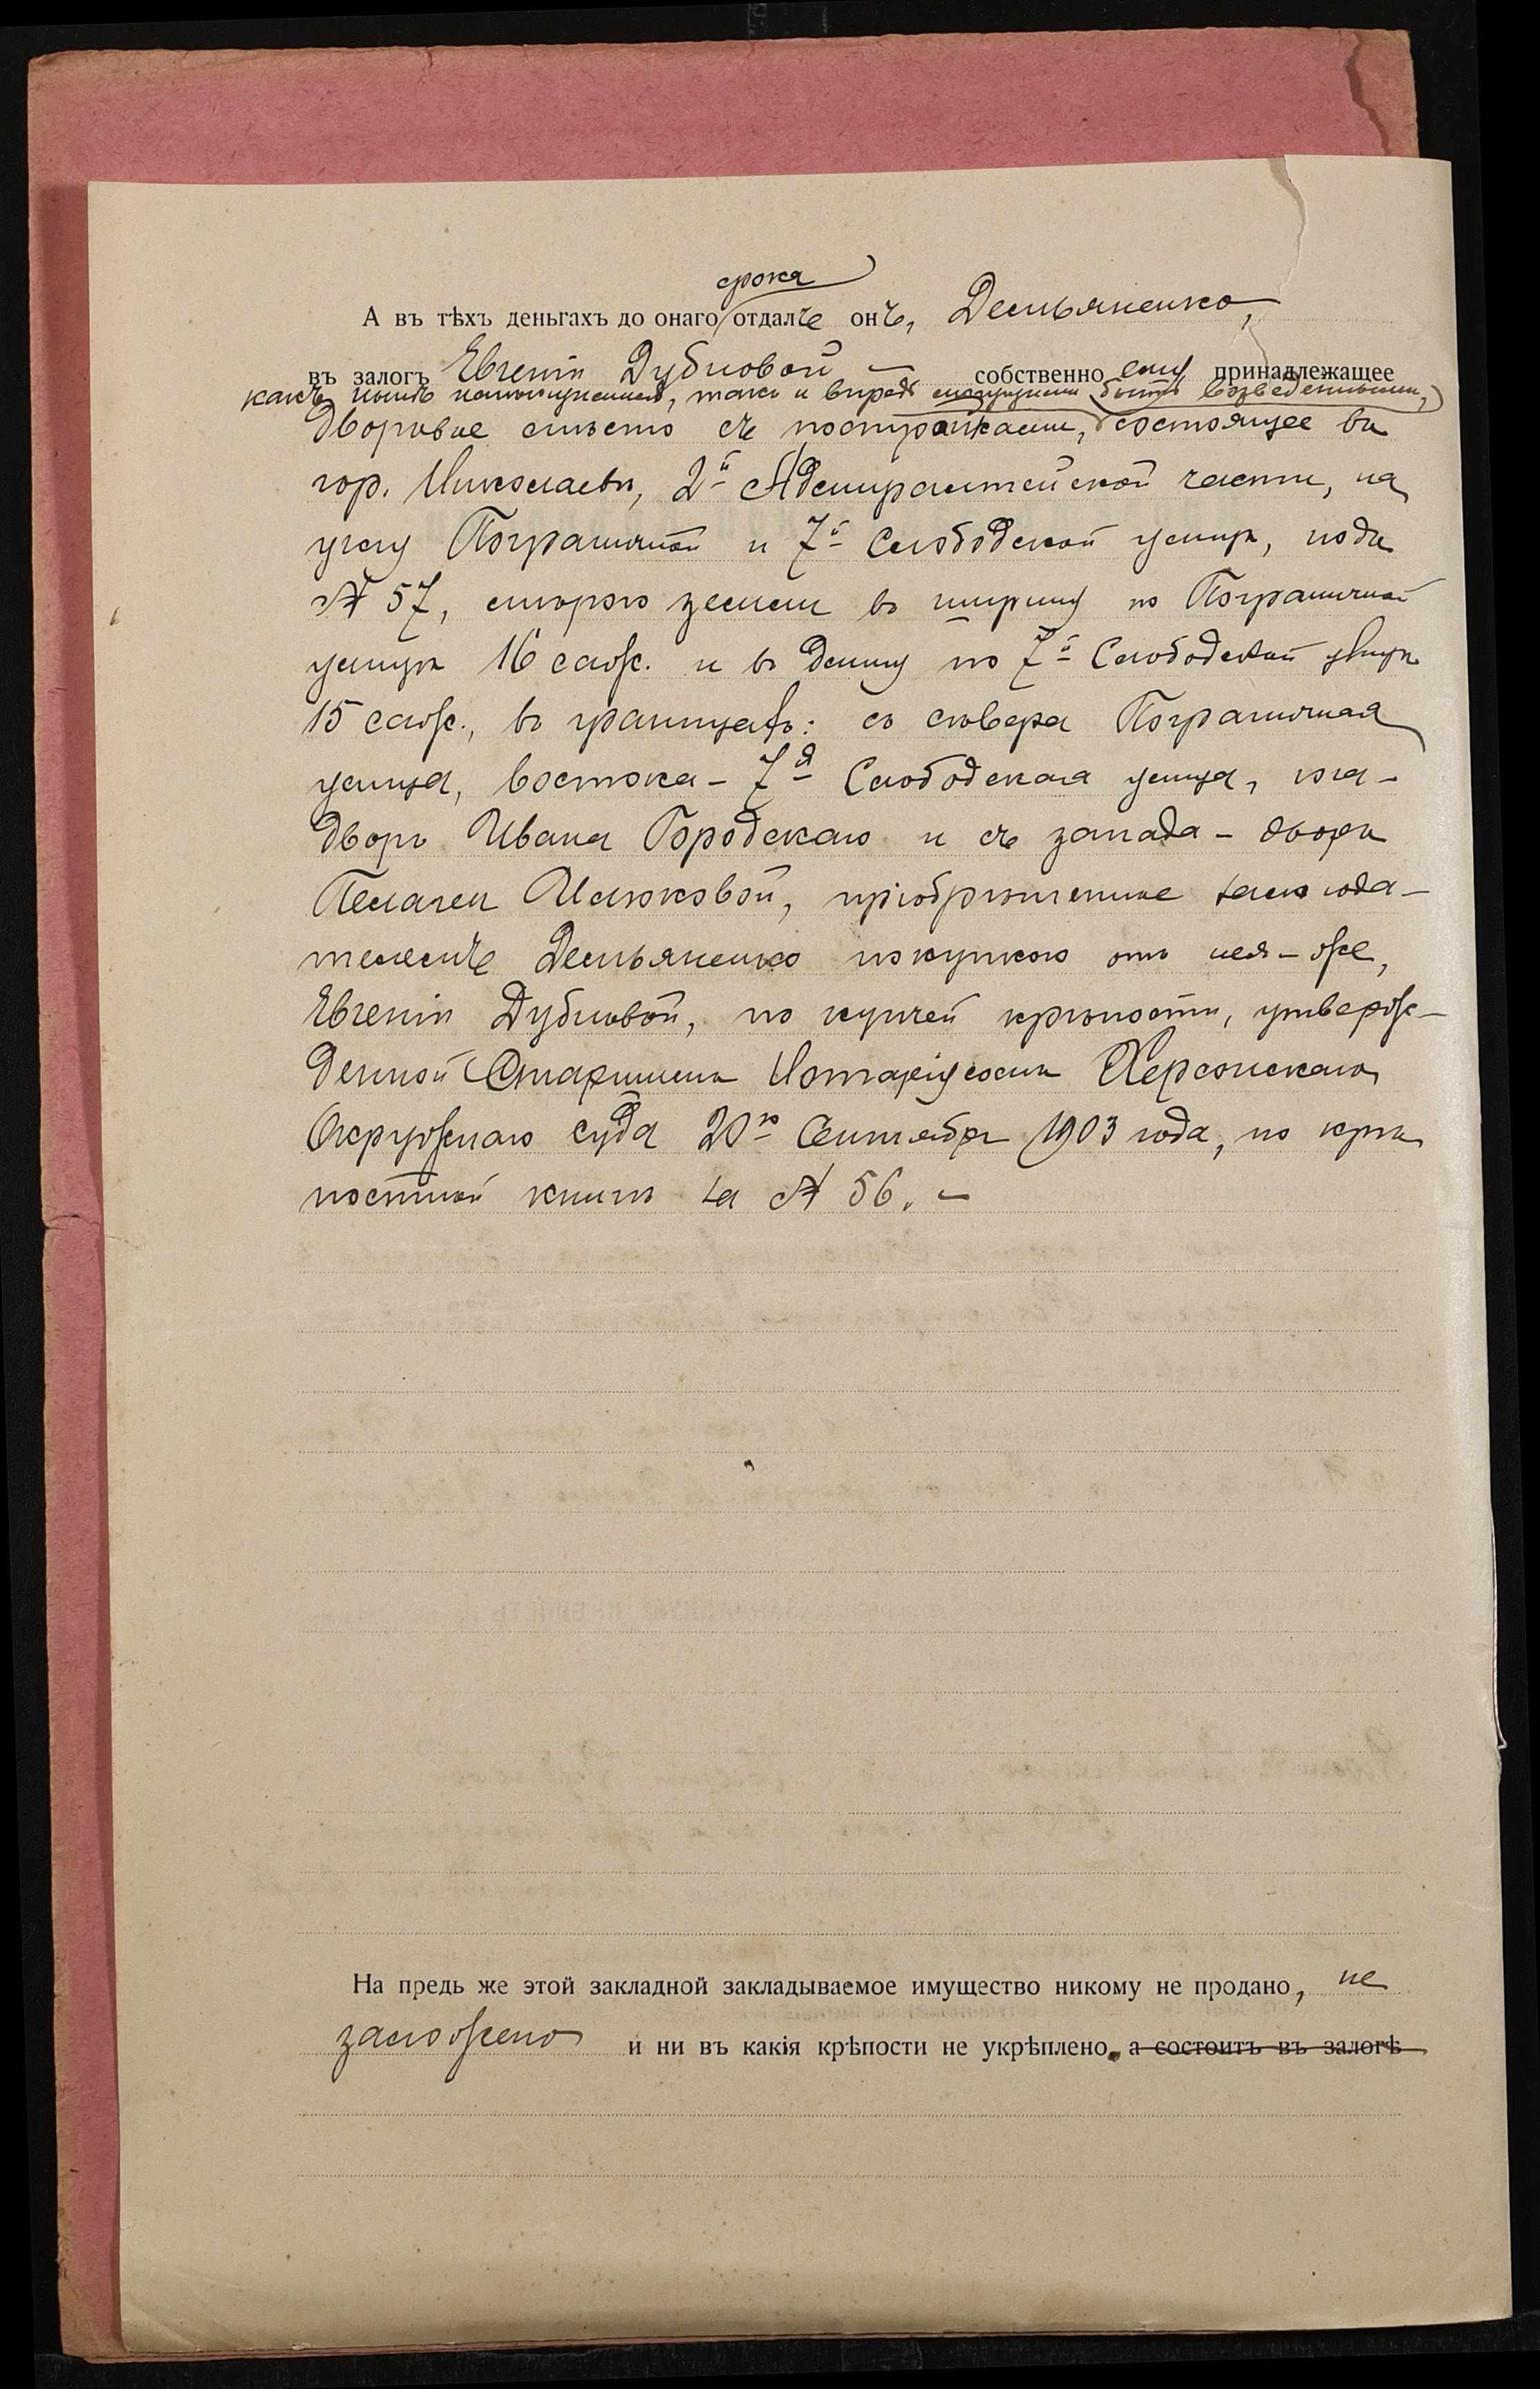 срока
А въ тѣхъ деньгахъ до онаго отдалъ онъ, Демьяненко,
въ залогъ Евгеніи Дубновой — собственно ему принадлежащее
какъ нынѣ находящимися, такъ и впредь могущими быть возведенными,
дворовое мѣсто съ постройками, состоящее въ
гор. Николаевѣ, 2й Адмиралтейской части, на
углу Пограничной и 7й Слободской улицъ, подъ
№ 57, мѣрою земли въ ширину по Пограничной
улицѣ 16 саж. и въ длину по 7й Слободской улицѣ
15 саж., въ границахъ: съ сѣвера Пограничная
улица, востока – 7я Слободская улица, юга –
дворъ Ивана Городскаго и съ запада – дворъ
Пелагеи, пріобрѣтенное залогода-
телемъ Демьяненко покупкою отъ нея-же,
Евгеніи Дубновой, по купчей крѣпости, утверж-
денной Старшимъ Нотаріусомъ Херсонскаго
Окружнаго суда 20го Сентября 1903 года, по крѣ
постной книгѣ за № 56. –
На предь же этой закладной закладываемое имущество никому не продано, не
заложено и ни въ какія крѣпости не укрѣплено. а состоитъ въ залогѣ